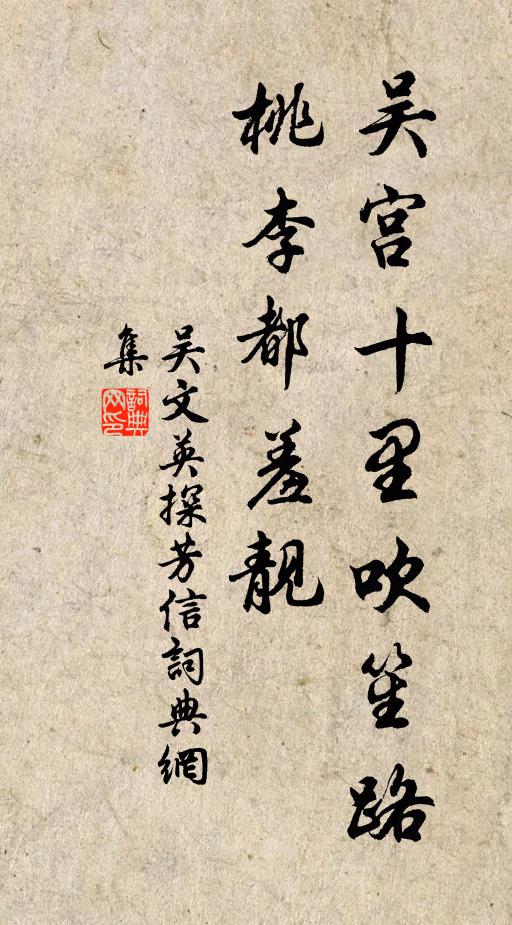 吴宫十里吹笙路
桃李都羞靓
吴文英探芳信詞典網
集
詞典网印